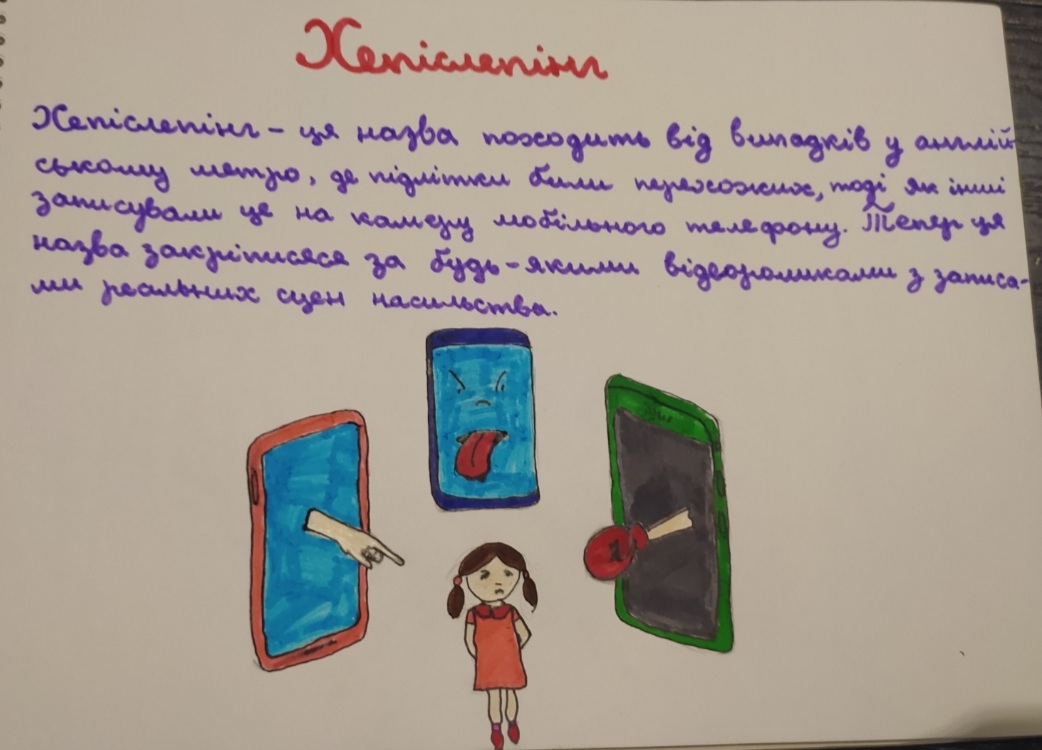 Хепіслепінг
Хепіслепінг – ця назва походить від випадків у англій-
ському метро, де підлітки били перехожих, тоді як інші
записували це на камеру мобільного телефону. Тепер ця
назва закріпиляся за будь-якими відеороликами з записа-
ми реальних сцен насильства.